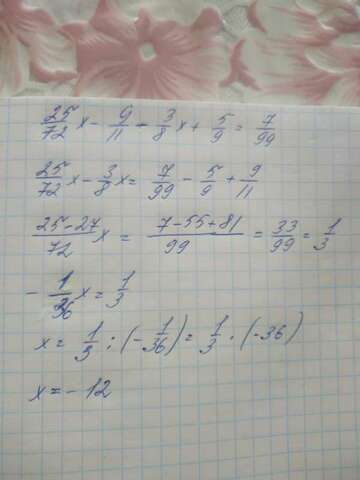 25/72 x - 9/11 - 3/8 x + 5/9 = 7/99
25/72 x - 3/8 x = 7/99 - 5/9 + 9/11
25-27/72 x = 7-55+81/99 = 33/99 = 1/3
- 1/36 x = 1/3
x = 1/3 : (- 1/36) = 1/3 · (-36)
x = - 12